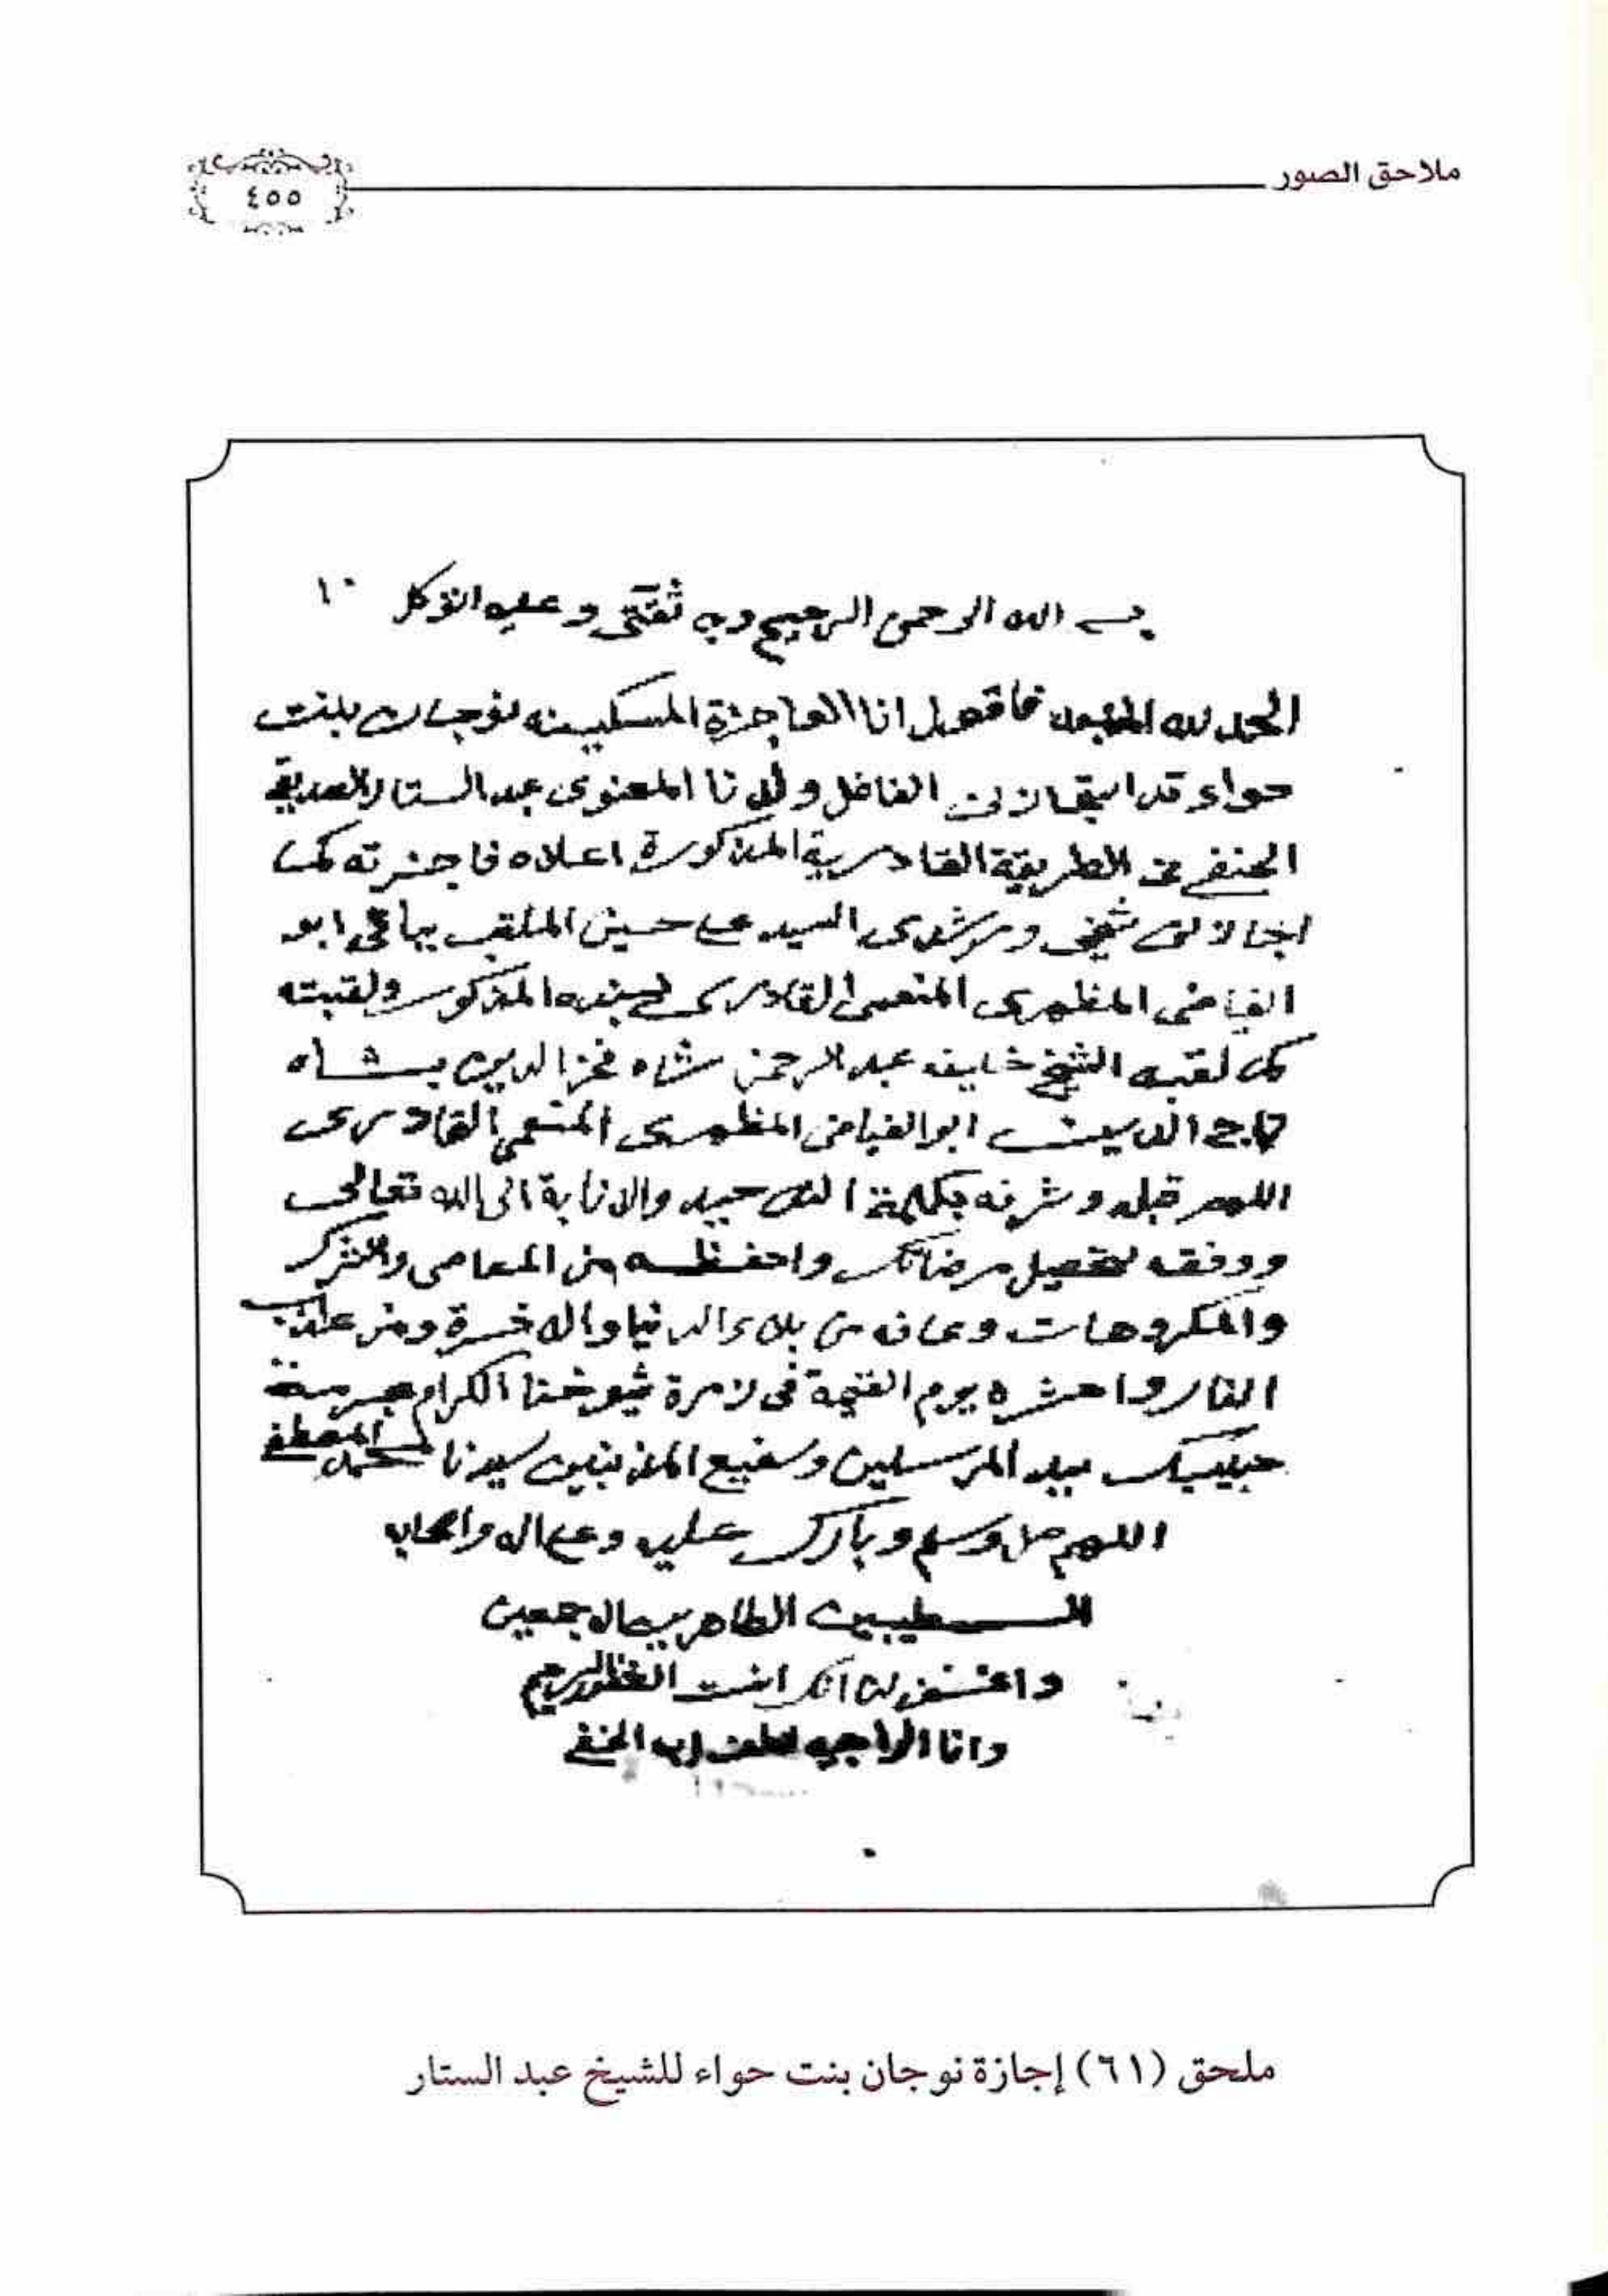 ملاحق الصور
٤٥٥
بسم الله الرحمن الرحيم وبه ثقتي وعليه التوكل
الحمد لله فاقول انا العاجزة المسكينه نوجان بنت
حواء قد الفاضل ولدنا المعنوى عبد الستار الصديقي
الحنفي الطريقة القادرية المذكورة اعلاه فاجزته كما
اجازنى شيخي ومرشدى السيد على حسين الملقب ابو
الفياض المظهرى المنعمى القادرى بسنده المذكور ولقبته
كما لقبه الشيخ عبد الرحمن شاه فخر الدين
تاج الدين ابو الفياض المظهرى المنعمى القادرى
اللهم وشرفه بكلمة التوحيد والانابة الى الله تعالى
ووفقه لتحصيل مرضاتك واحفظه من المعاصى والشرك
والمكروهات وعافه من بلاء الدنيا والاخرة ومن عذاب
النار واحشره يوم القيمة فى زمرة شيوخنا الكرام بحرمة
حبيبك سيد المرسلين وشفيع المذنبين سيدنا محمد المصطفى
اللهم صل وسلم وبارك عليه وعلى اله واصحابه
الطيبين الطاهرين اجمعين
واغفر لنا انك انت الغفور الرحيم
وانا الراجيه لطف ربه الخفي
ملحق (٦١) إجازة نوجان بنت حواء للشيخ عبد الستار